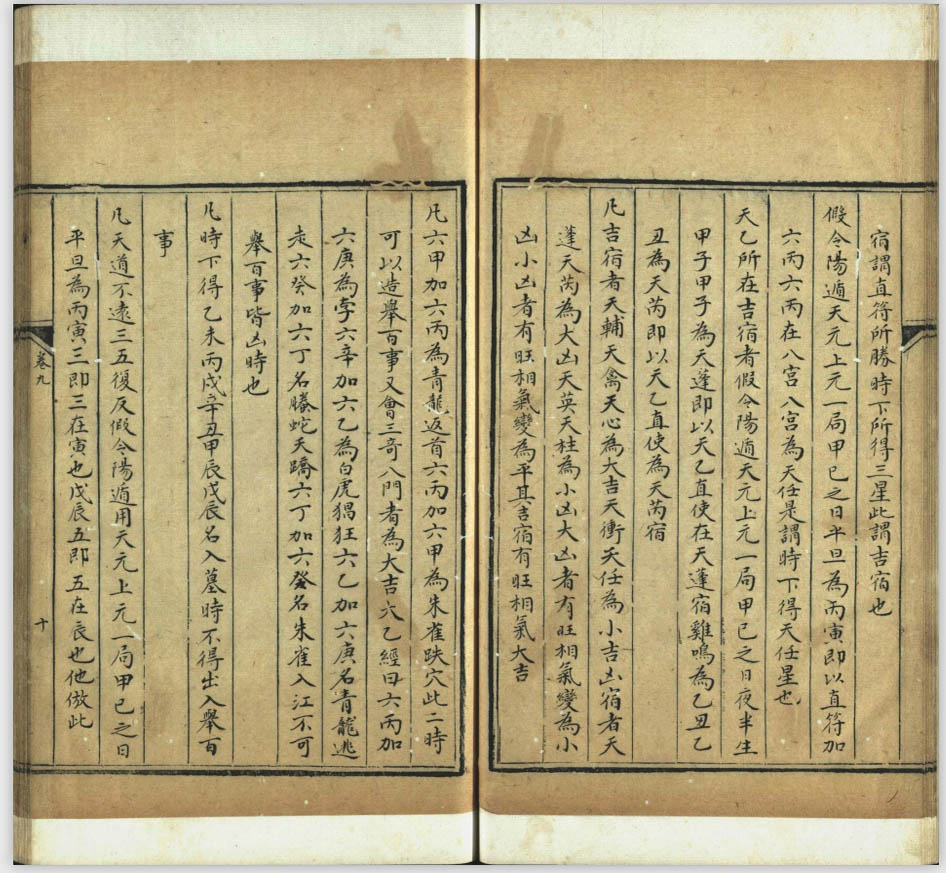 宿謂直符所勝時下所得三星此謂吉宿也
假令陽遁天元上元一局甲已之日平旦為丙寅即以直符加
六丙六丙在八宮八宮為天任是謂時下得天任星也
天乙所在吉宿者假令陽遁天元上元一局甲已之日夜半生
甲子甲子為天蓬即以天乙直使在天蓬宿雞鳴為乙丑乙
丑為天芮即以天乙直使為天芮宿
凡吉宿者天輔天禽天心為大吉天衝天任為小吉凶宿者天
蓬天芮為大凶天英天柱為小凶大凶者有旺相氣變為小
凶小凶者有旺相氣變為平其吉宿有旺相氣大吉
凡六甲加六丙為青龍返首六丙加六甲為朱雀跌穴此二時
可以造舉百事又會三奇八門者為大吉六乙經曰六丙加
六庚為孛六辛加六乙為白虎猖狂六乙加六庚名青龍逃
走六癸加六丁名螣蛇天蹻六丁加六癸名朱雀入江不可
舉百事皆凶時也
凡時下得乙未丙戌辛丑甲辰戊辰名入墓時不得出入舉百
事
凡天道不遠三五復反假令陽遁用天元上元一局甲已之日
平旦為丙寅三即三在寅也戊辰五即五在辰也他倣此
卷九
十